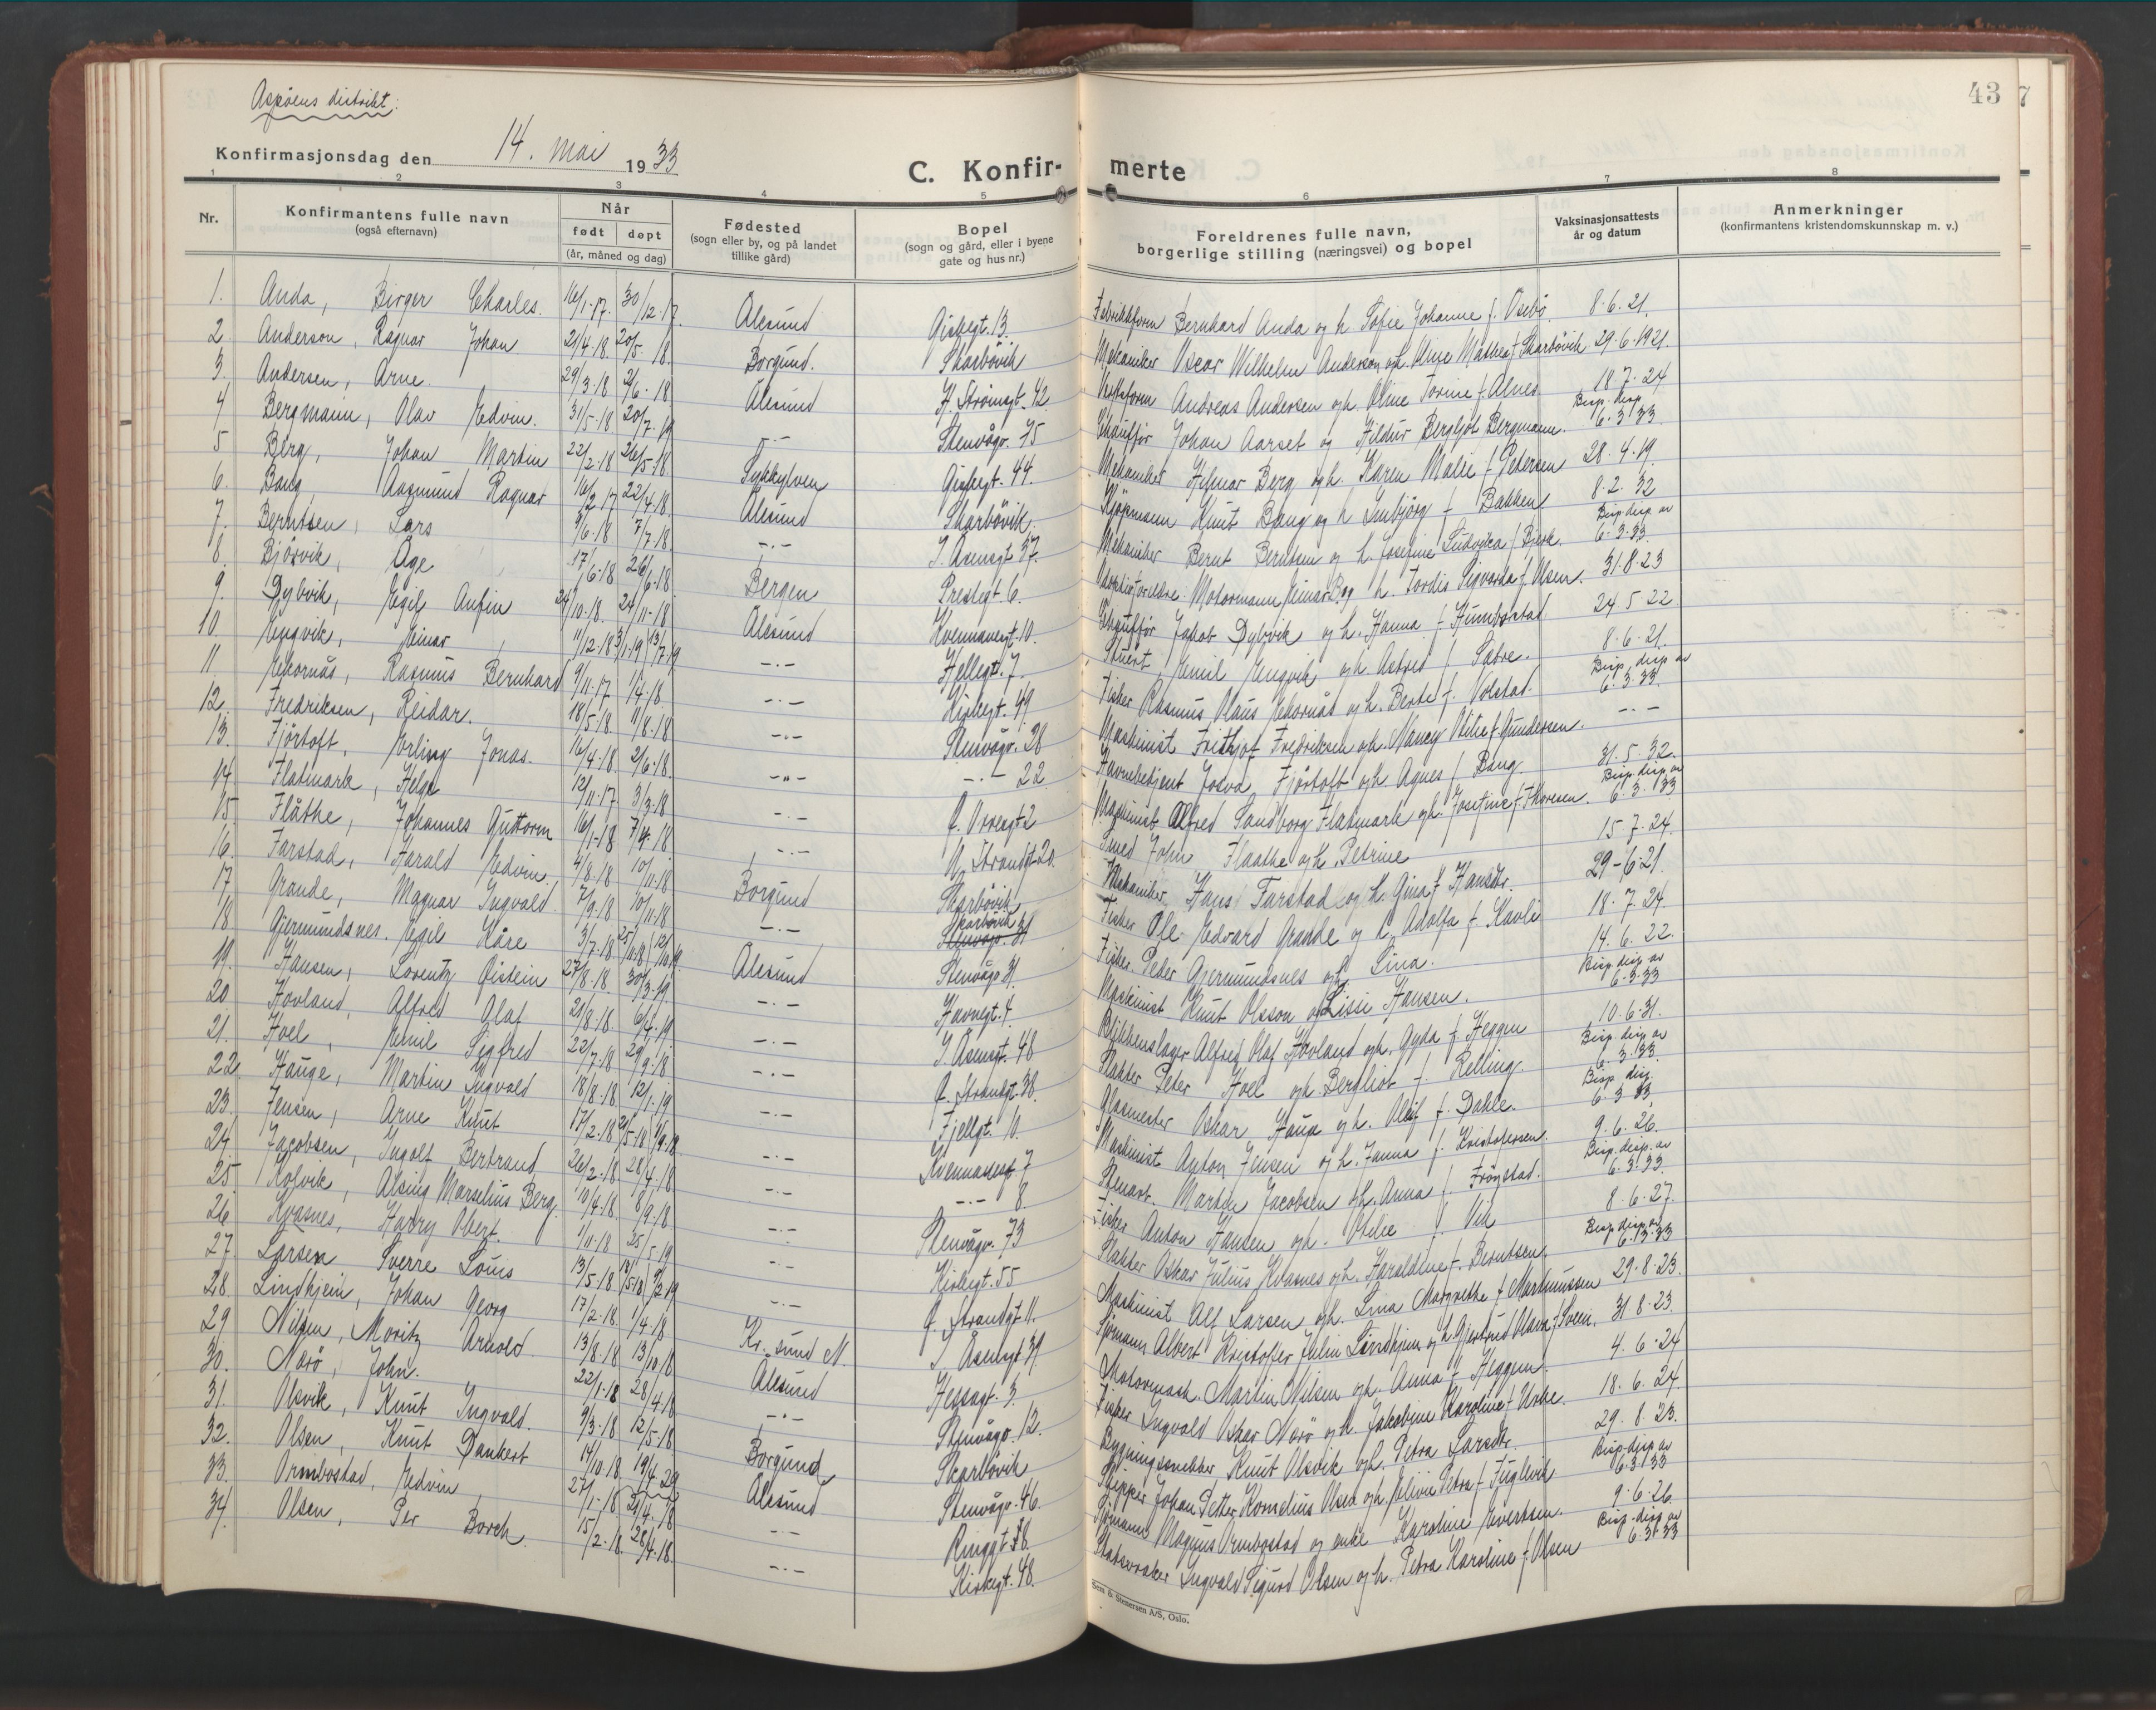 Aspöens distrikt:
43 7
Konfirmasjonsdag den 14. mai 1933
C. Konfir- merte
1 2 3 4 5 6 7 8
Nr. Konfirmantens fulle navn (også efternavn) Når født døpt (år, måned og dag) Fødested (sogn eller by, og på landet tillike gård) Bopel (sogn og gård, eller i byene gate og hus nr.) Foreldrenes fulle navn, borgerlige stilling (næringsvei) og bopel Vaksinasjonsattests år og datum Anmerkninger (konfirmantens kristendomskunnskap m. v.)
1. Anda, Birger Charles. 16/1-17. 30/12-17. Ålesund Giskegt. 13. Bernhard Anda og h. Sofie Johanne f. Osebö 8.6.21.
2. Anderson, Ragnar Johan 21/4-18. 20/5-18. Borgund. Skarbövik Mekaniker Oscar Wilhelm Anderson og h. Oline Mathea f. Skarbövik 29.6.1921.
3. Andersen, Arne. 29/3-18 2/6-18 Ålesund K. Strömgt. 42 Andreas Andersen og h. Oline Torine f. Alnes 18.7.24
4 Bergmann, Olav Edvin. 31/5-18 20/7-19 -.- Stenvågv. 75 Chaufför Johan Aarset og Hildur Bergljot Bergmann. Bisp. disp. 6.3.33
5 Berg, Johan Martin 22/2-18 26/5-18 Sykkylven Giskegt. 44. Mekaniker Hilmar Berg og h. Karen Malie f. Petersen 28.4.19.
6. Bang, Aasmund Ragnar 16/2-17 22/4-18. Ålesund Skarbövik. Kjöpmann Knut Bang og h. Innbjörg f. Bakken 8.2.32
7. Berntsen, Lars 9/6-18 7/7-18. -.- I. Åsengt. 37. Mekaniker Bernt Berntsen og h. Josefine Ludvika f. Bjerk. Bisp. disp. av 6.3.33.
8. Björvik, Åge 17/6-18 26/6-18 Bergen Prestgt. 6. Motormann Einar Berg h. Tordis Sigvarda f. Olsen. 31.8.23
9. Dybvik, Egil Anfin 24/10-18. 24/11-18 Ålesund Kvennavegt. 10. Chaufför Jakob Dybvik og h. Hanna f. Humborstad 24.5.22
10. Engvik, Einar 11/12-18 3/1-19 13/7-19 -.- Fjellgt. 7. Stuert Emil Engvik og h. Astrid f. Sætre. 8.6.21.
11 Ekornås, Rasmus Bernhard 9/11-17. 1/4-18. -.- Kirkegt. 49. Fisker Rasmus Olaus Ekornås og h. Berte f. Volstad. Bisp. disp. av 6.3.33.
12. Fredriksen, Reidar. 18/5-18. 11/8-18 -.- Stenvågv. 28 Maskinist Frithjof Fredriksen og h. Nancy Otilie f. Gundersen. -.-
13. Fjörtoft, Erling Jonas. 16/4-18. 2/6-18. -.- -.- 22 Havnebetjent Josva Fjörtoft og h. Agnes f. Bang. 31.5.32.
14 Flatmark, Helge 12/11-17. 3/3-18 -.- Maskinist Alfred Sandborg Flatmark og h. Josefine f. Thoresen. Bisp. disp. av 6.3.33
15 Flåthe, Johannes Guttorm 16/1-18 7/4-18 -.- N. Strandgt. 20. Smed John Flaathe og h. Petrine 15.7.24.
16. Farstad, Harald Edvin 4/8-18 10/11-18 Borgund Skarbövik Mekaniker Hans Farstad og h. Gina f. Hansdtr. 29-6-21.
17 Grande, Magnar Ingvald 7/9-18 10/11-18 -.- Skarbövik Fisker Ole Edvard Grande og h. Adolfa f. Kavli 18.7.24.
18 Gjermundsnes. Egil Kåre 3/7-18 25/10-18 12/10-19 Ålesund Stenvågv. 31. Fisker Peder Gjermundsnes og h. Lina. 14.6.22.
19. Hansen, Lorentz Öistein 27/8-18. 30/3-19. -.- Havnegt. 4. Maskinist Knut Olsson og Lissi Hansen. Bisp. disp. av 6.3.33
20 Hovland, Alfred Olaf 21/8-18 6/4-19 -.- I. Åsengt. 48 Blikkenslager Alfred Olaf Hovland og h. Gyda f. Heggen 10.6.31.
21. Hoel, Emil Sigfred 22/7-18 29/9-18 -.- Strandgt. 38. Slakter Peter Hoel og h. Bergliot f. Helling. Bisp. disp. av 6.3.33.
22. Hauge, Martin Ingvald 18/8-18. 12/1-19 -.- Fjellgt. 10. Glasmester Oskar Hauge og h. f. Dahle. Bisp. disp. 6.3.33,
23. Jensen, Arne Knut 17/2-18 -.- Kvennavegt 7 Maskinist Anton Jensen og h. Janna f. Kristofersen. 9.6.26.
24. Jacobsen, Ingolf Bertrand 26/2-18 28/4-18 -.- -.- 8. Stenarb. Martin Jacobsen og h. Anna f. Bisp. disp. av 6.3.33.
25 Kolvik, Alsing Marselius Berg. 10/4-18. 8/9-18. -.- Stenvågv. 73 Fisker Anton Hansen og h. Otilie f. Vik 8.6.27.
26 Kvasnes, Harry Obert. 1/11-18 25/5-19 -.- Kirkegt. 55 Slakter Oskar Julius Kvasnes og h. Haraldine f. Berntsen. Bisp. disp. av 6.3.33
27. Larsen, Sverre Louis 13/5-18 -.- Strandgt. 11. Maskinist Alf Larsen og h. Lina Margrethe f. Martinussen 29.8.23.
28. Lindkjein, Johan Georg 17/2-18. 1/4-18 Kr. sund N. I. Åsengt. 39. Sjömann Albert Kristoffer Julin Lindkjein og h. Gjertrud Olava f. Svein. 31.8.23.
29 Nilsen, Moritz Arnold. 13/8-18 13/10-18 Ålesund Hessagt. 3. Motormask. Martin Nilsen og h. Anna f. Heggem 4.6.24
30. Narö, John. 22/1-18 28/4-18 -.- Stenvågv. 12. Fisker Ingvald Oskar Narö og h. Jakobine Karoline f. Urke. 18.6.24.
31. Olsvik, Knut Ingvald. 9/3-18 12/5-18 Borgund Skarbövik Bygningssnekker Knut Olsvik og h. Petra Larsdtr. 29.8.23.
32. Olsen, Knut Dankert 14/10-18. 19/4-20 Ålesund Stenvågv. 46. Skipper Johan Petter Kornelius Olsen og h. Olivie Petra f. Fuglevik Bisp. disp. av 6.3.33
33. Ormbostad, Edvin 27/1-18 21/4-18 -.- Ringgt. 38. Sjömann Magnus Ormbostad og enke Karoline Evertsen. 9.6.26.
34. Olsen, Per Borch. 15/2-18. 28/4-18. -.- Kirkegt. 48. Ingvald Sigurd Olsen og h. Petra Karoline f. Olsen Bisp. disp. av 6.3.33
Sem & Stenersen A/S, Oslo.